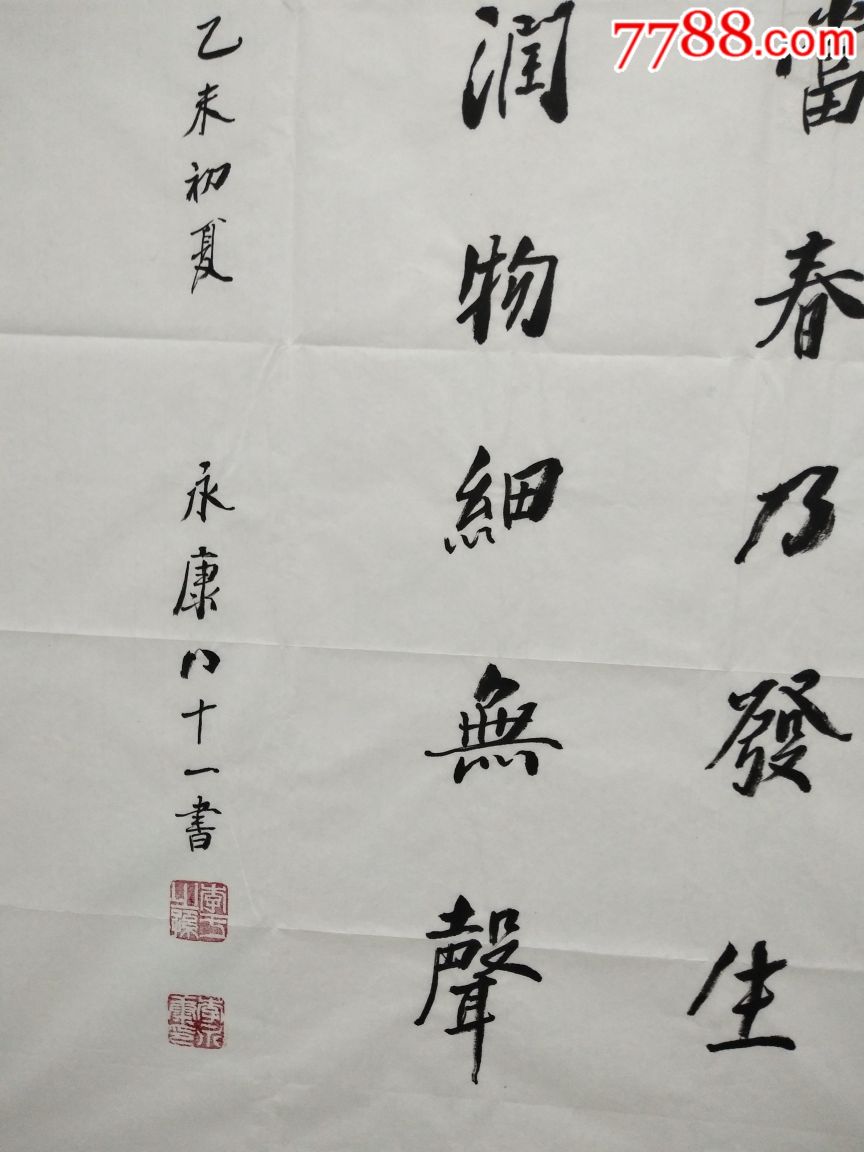 7788.com
當春乃發生
潤物細無聲
乙未初夏
永康八十一書